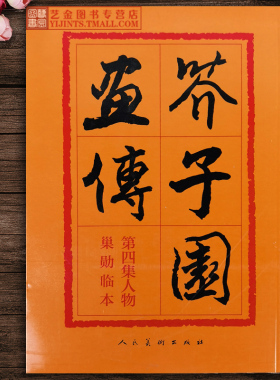 艺金图书专营店
YLJINTS.TMALL.COM
芥子園
畫傳
第四集人物
巢勋临本
人民美术出版社